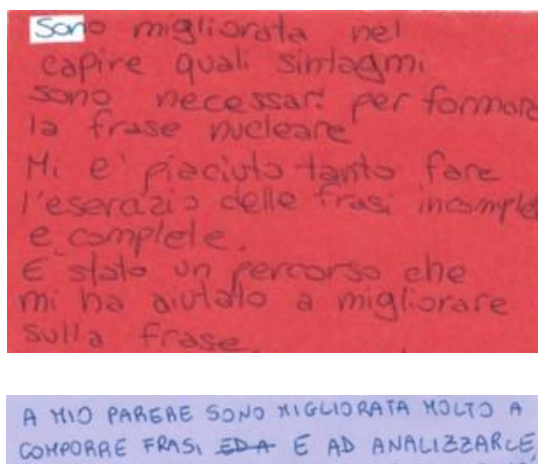 Sono migliorata nel
capire quali sintagmi
sono necessari per formare
la frase nucleare
Mi e' piaciuto tanto fare
l'eserazio delle frasi incomplet
e complete.
E' stato un percorso che
mi ha aiutato a migliorare
sulla frase.
A MIO PARERE SONO MIGLIORATA MOLTO A
COMPORRE FRASI EDA E AD ANALIZZARLE,